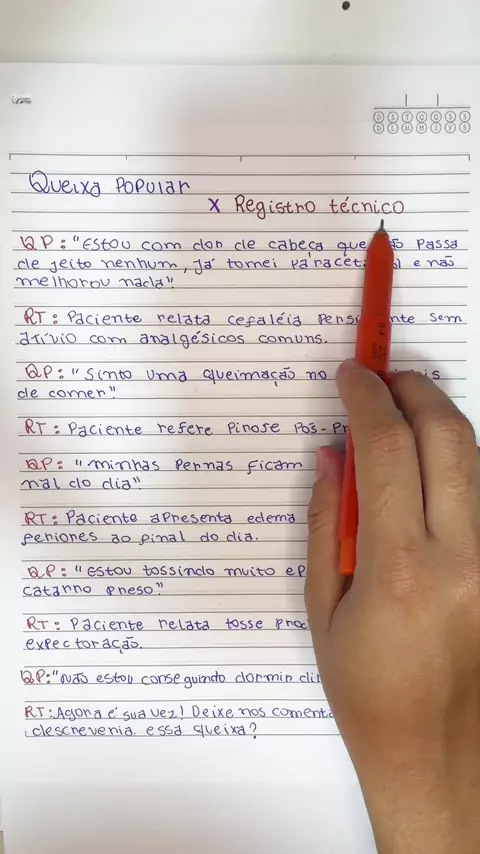 D S T Q Q S S
D L M M J V S
Queixa Popular
X Registro técnico
QP: "Estou com dor de cabeça que passa
de jeito nenhum, já tomei e não
melhorou nada".
RT: Paciente relata cefaléia sem
alívio com analgésicos comuns.
QP: "Sinto uma queimação no
de comer".
RT: Paciente refere Pirose Pós-
QP: "minhas Pernas ficam
nal do dia".
RT: Paciente apresenta edema
feriores ao final do dia.
QP: "Estou tossindo muito e
catarro preso".
RT: Paciente relata tosse
expectoração.
QP: "não estou conseguindo dormir
RT: Agora é sua vez! Deixe nos
descreveria essa queixa?